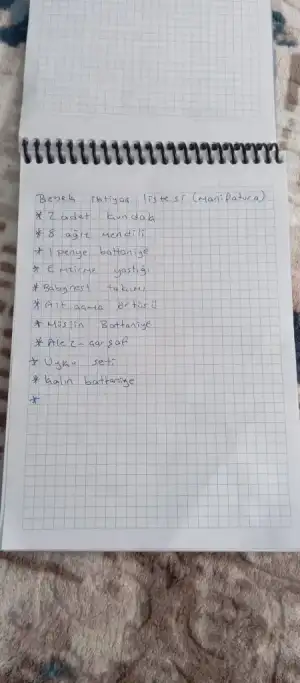 Bebek ihtiyaç listesi (Manifatura)
* 2 adet kundak
* 8 ağız mendili
* 1 penye battaniye
* Emzirme yastığı
* Babynest takımı
* Alt açma örtüsü
* Müslin Battaniye
* Alez - çarşaf
* Uyku seti
* kalın battaniye
*